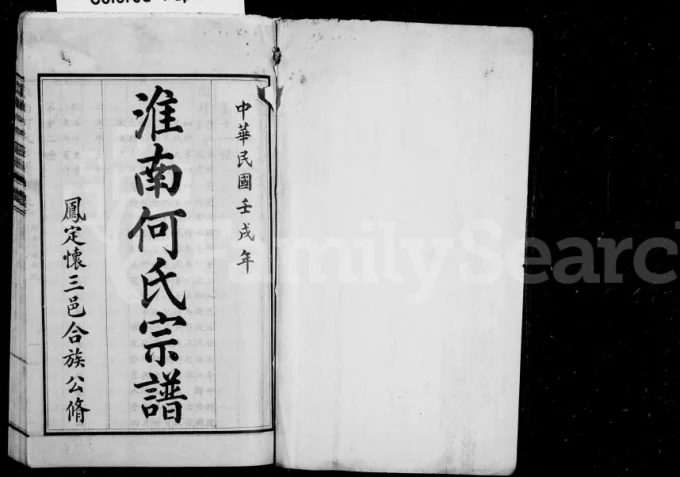 中華民國壬戌年
淮南何氏宗譜
鳳定懷三邑合族公脩
FamilySearch